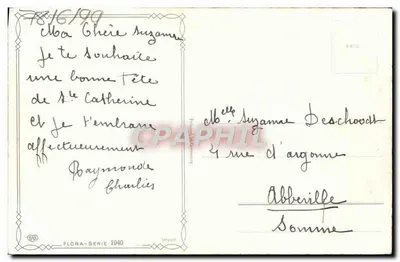 7816/99
Ma Chère Suzanne
je te souhaite
une bonne fête
de Ste Catherine
et je t'embrasse
affectueusement
Raymonde
Charlies
FLORA-SERIE 1940
Melle Suzanne Deschoodt
4 rue d'argonne
Abbeville
Somme
CPARAMA